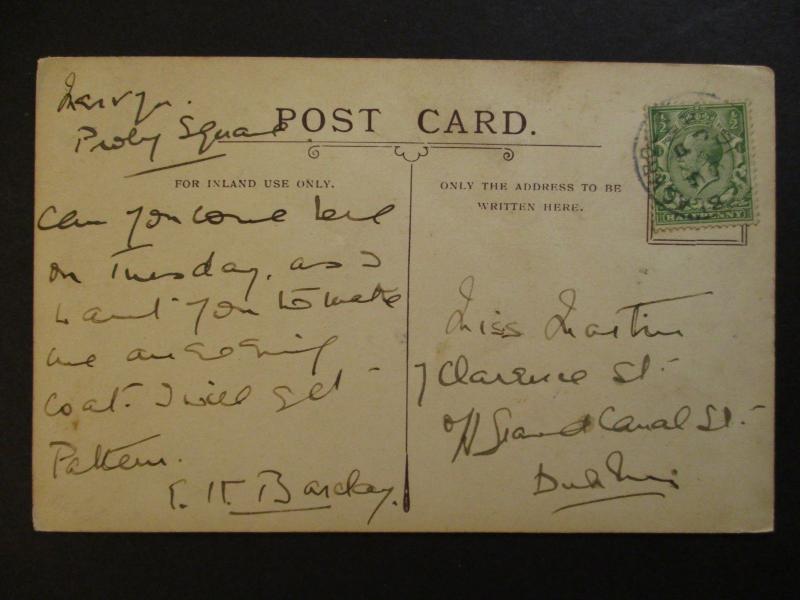 Proby Square.
POST CARD.
FOR INLAND USE ONLY.
Can you come here
on Tuesday, as I
want you to make
me an evening
coat. I will get
Pattern.
E. H. Barclay.
ONLY THE ADDRESS TO BE
WRITTEN HERE.
HALFPENNY
Miss Martin
7 Clarence St.
off Grand Canal St.
Dublin